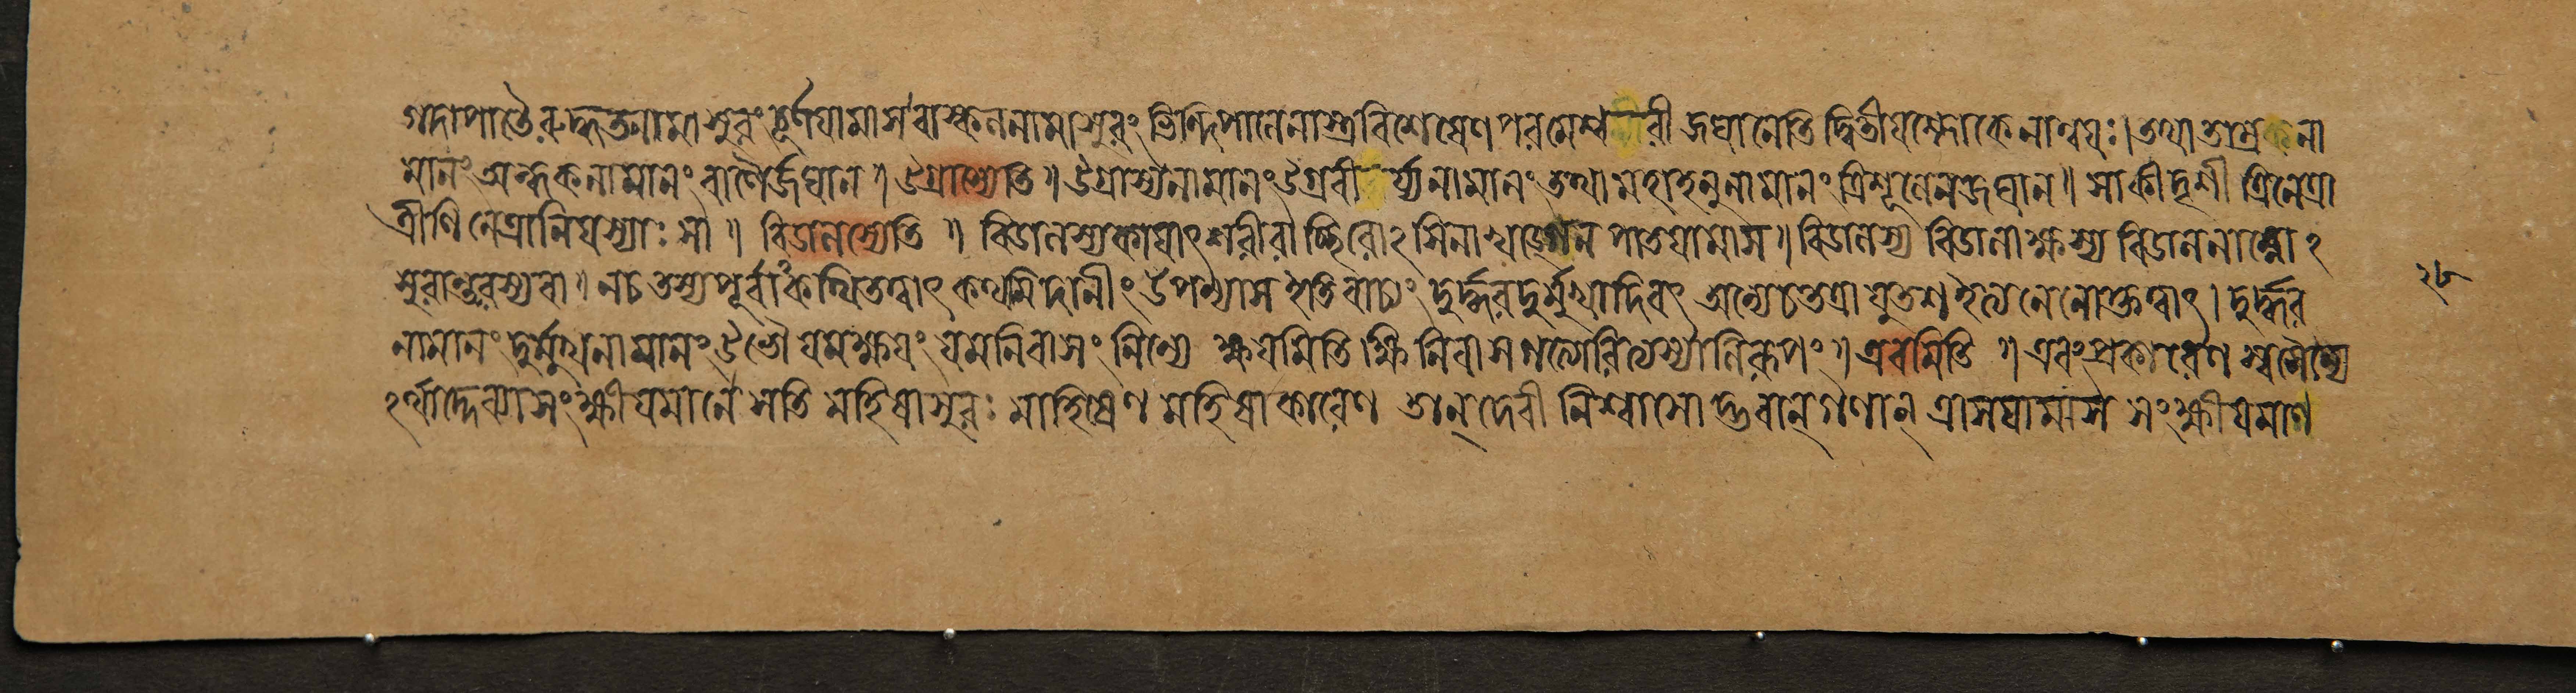 গদাপাতৈরুদ্ধতনামাসুরং চূর্ণযামাস বাস্কলনামাসুরং ভিন্দিপালেনাস্ত্রবিশেষেণ পরমেশ্বরী জঘানেতি দ্বিতীযশ্লোকেনান্বযঃ। তথা তাম্রকনা
মানং অন্ধকনামানং বাণৈর্জঘান॥ উগ্রাস্যেতি॥ উগ্রাস্যনামানং উগ্রবীর্য্যনামানং তথা মহাহনুনামানং ত্রিশূলেন জঘান॥ সা কীদৃশী ত্রিনেত্রা
ত্রীণি নেত্রানি যস্যাঃ সা॥ বিডালস্যেতি॥ বিডালস্য কাযাৎ শরীরাচ্ছিরোঽসিনা খড্গেন পাতযামাস॥ বিডালস্য বিডালাক্ষস্য বিডালনাম্নোঽ
সুরান্তরস্য বা॥ ন চ তস্য পূর্বাকথিতত্বাৎ কথমিদানীং উপন্যাস ইতি বাচ্যং দুর্দ্ধরদুর্মুখাদিবৎ অন্যে চ তত্রাযুতশ ইত্যনেনোক্তত্বাৎ। দুর্দ্ধর
নামানং দুর্মুখনামানং উভৌ যমক্ষযং যমনিবাসং নিন্যে ক্ষযমিতি ক্ষি নিবাসগত্যোরিত্যস্যালিরূপং॥ এবমিতি॥ এবং প্রকারেণ স্বসৈন্যে
ঽর্থাদ্দেব্যা সংক্ষীযমানে সতি মহিষাসুরঃ মাহিষেণ মহিষাকারেণ তান্ দেবী নিশ্বাসোদ্ভবান্ গণান্ ত্রাসযামাস সংক্ষীযমাণ
২৮